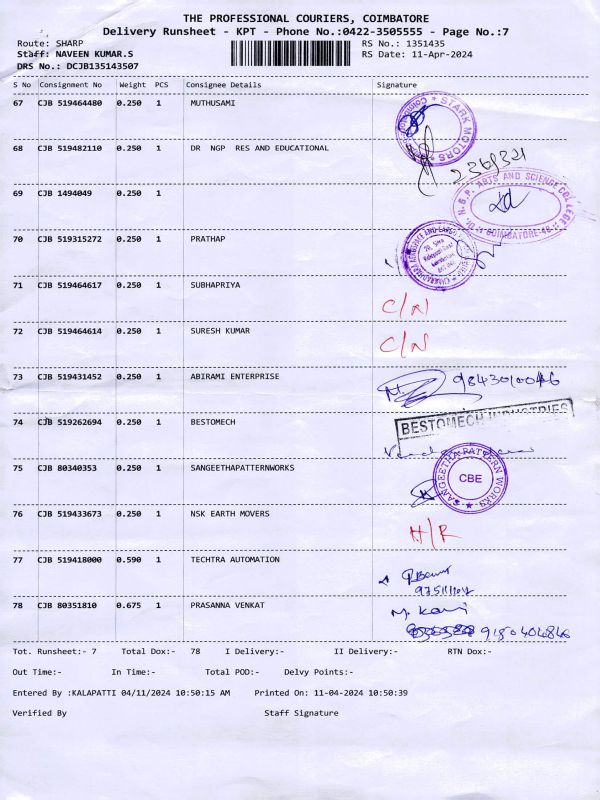 THE PROFESSIONAL COURIERS, COIMBATORE
Delivery Runsheet - KPT - Phone No.:0422-3505555 - Page No.:7
Route: SHARP RS No.: 1351435
Staff: NAVEEN KUMAR.S RS Date: 11-Apr-2024
DRS No.: DCJB135143507
S No Consignment No Weight PCS Consignee Details Signature
67 CJB 519464480 0.250 1 MUTHUSAMI
STARK MOTORS
68 CJB 519482110 0.250 1 DR NGP RES AND EDUCATIONAL
69 CJB 1494049 0.250 1
Dr. N.G.P. ARTS AND SCIENCE COLLEGE
COIMBATORE-48
70 CJB 519315272 0.250 1 PRATHAP
71 CJB 519464617 0.250 1 SUBHAPRIYA
C/N
72 CJB 519464614 0.250 1 SURESH KUMAR
C/N
73 CJB 519431452 0.250 1 ABIRAMI ENTERPRISE
74 CJB 519262694 0.250 1 BESTOMECH
BESTOMECH INDUSTRIES
75 CJB 80340353 0.250 1 SANGEETHAPATTERNWORKS
SANGEETHA PATTERN WORKS
CBE
76 CJB 519433673 0.250 1 NSK EARTH MOVERS
H/R
77 CJB 519418000 0.590 1 TECHTRA AUTOMATION
78 CJB 80351810 0.675 1 PRASANNA VENKAT
M. Kavi
9150404846
Tot. Runsheet:- 7 Total Dox:- 78 I Delivery:- II Delivery:- RTN Dox:-
Out Time:- In Time:- Total POD:- Delvy Points:-
Entered By :KALAPATTI 04/11/2024 10:50:15 AM Printed On: 11-04-2024 10:50:39
Verified By Staff Signature